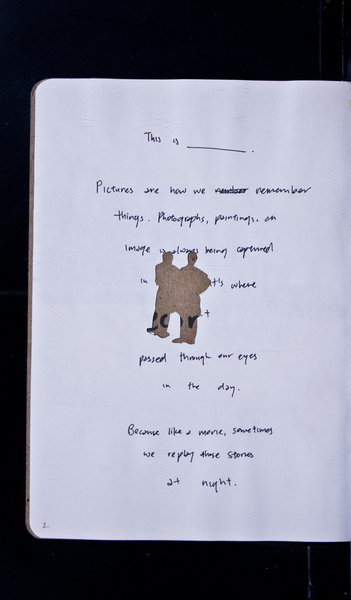 This is ______.
Pictures are how we remember
things. Photographs, paintings, an
image is always being captured
in it's where
t
passed through our eyes
in the day.
Because like a movie, sometimes
we replay those stories
at night.
2